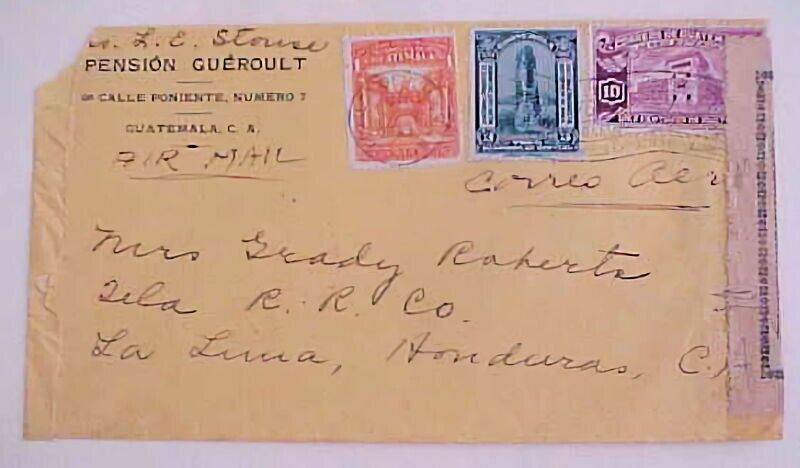 L. E. Stouse
PENSIÓN GUÉROULT
8A CALLE PONIENTE, NUMERO 7
GUATEMALA, C. A.
AIR MAIL
10
Correo Aer
Mrs Grady Roberts
Tela R. R. Co.
La Lima, Honduras, C.